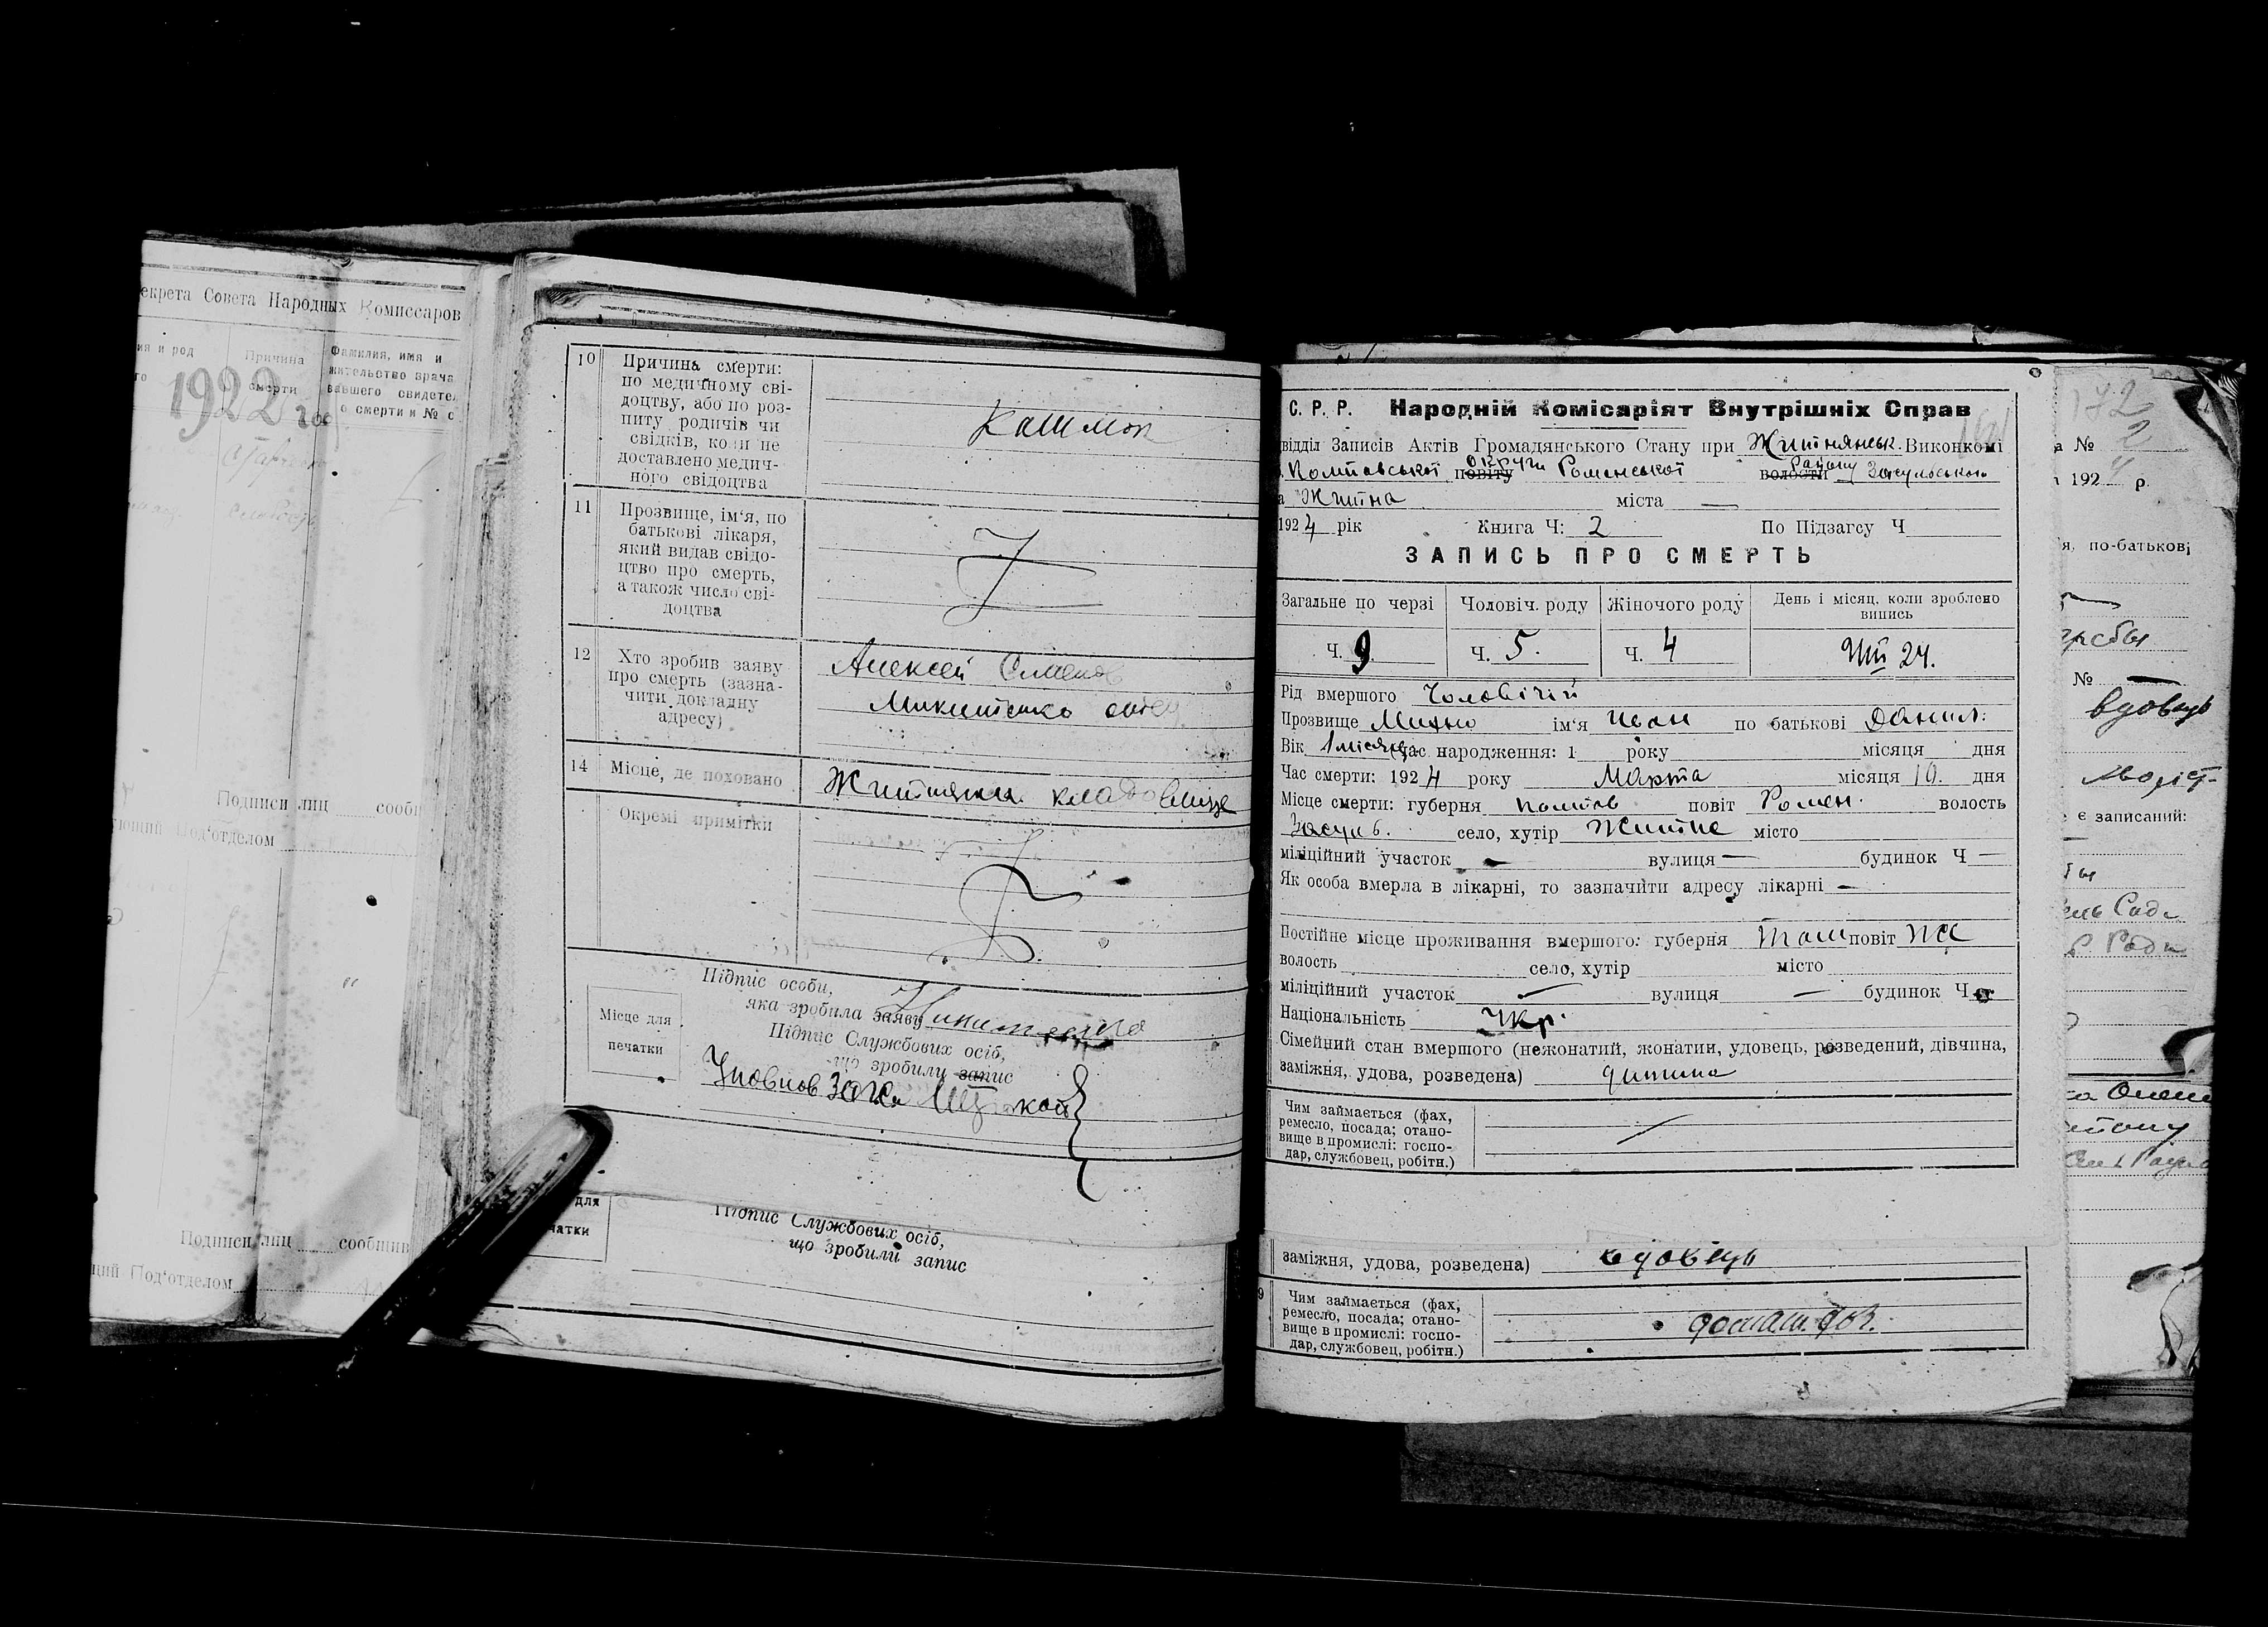 екрета Совета Народных Комиссаров
ия и род
го
Причина
смерти
Фамилия, имя и
жительство врача
вавшего свидетел
о смерти и № с
1922 год
Подписи лиц сообщ
ющий Под'отделом
Подписи лиц сообщив
щий Под'отделом
10 Причина смерти:
по медичному сві-
доцтву, або по роз-
питу родичів чи
свідків, коли не
доставлено медич-
ного свідоцтва
Кашлюк
11 Прозвище, ім'я, по
батькові лікаря,
який видав свідо-
цтво про смерть,
а також число сві-
доцтва
12 Хто зробив заяву
про смерть (зазна-
чити докладну
адресу)
Алексей Семенов
Микитенко
14 Місце, де поховано
Житнянск. кладовище
Окремі примітки
Підпис особи,
яка зробила заяву
Місце для
печатки
Підпис Службових осіб,
що зробили запис
Уповнов Загса
для
чатки
Підпис Службових осіб,
що зробили запис
С. Р. Р. Народній Комісаріят Внутрішніх Справ
відділ Записів Актів Громадянського Стану при Житнянськ. Виконкомі
Полтавської повіту округи Роменської волости Району Засульського
а Житна міста —
1924 рік Книга Ч: 2 По Підзагсу Ч
ЗАПИСЬ ПРО СМЕРТЬ
Загальне по черзі
Чоловіч. роду
Жіночого роду
День і місяц, коли зроблено
випись
Ч. 9.
Ч. 5.
Ч. 4
24.
Рід вмершого Чоловічій
Прозвище Михно ім'я Иван по батькові Данил:
Вік 1 місяць Час народження: 1 року місяця дня
Час смерти: 1924 року Марта місяця 10. дня
Місце смерти: губерня Полтав повіт Ромен. волость
Засул село, хутір Житне місто
міліційний участок — вулиця — будинок Ч —
Як особа вмерла в лікарні, то зазначити адресу лікарні —
Постійне місце проживання вмершого: губерня Там повіт же
волость село, хутір місто
міліційний участок — вулиця — будинок Ч
Національність Укр.
Сімейний стан вмершого (нежонатий, жонатии, удовець, розведений, дівчина,
заміжня, удова, розведена) дитина
Чим займається (фах,
ремесло, посада; отано-
вище в промислі: госпо-
дар, службовец, робітн.)
заміжня, удова, розведена) вдовець
9 Чим займається (фах,
ремесло, посада; отано-
вище в промислі: госпо-
дар, службовец, робітн.)
172
а № 2
1924 р.
я, по-батькові
№ —
вдовець
є записаний: